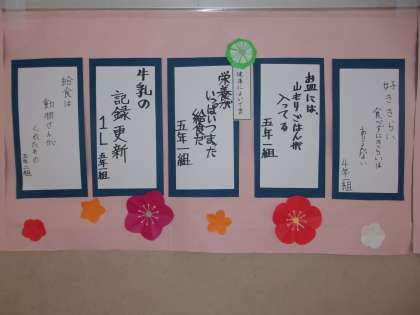 好ききらい
食べずにきらいは
4年組
お皿には、
山もりごはんが
入ってる
五年一組
健康によいで賞
栄養が
いっぱいつまった
給食だ
五年一組
牛乳の
記録更新
1L 五年一組
給食は
動物さんが
くれたもの
五年二組